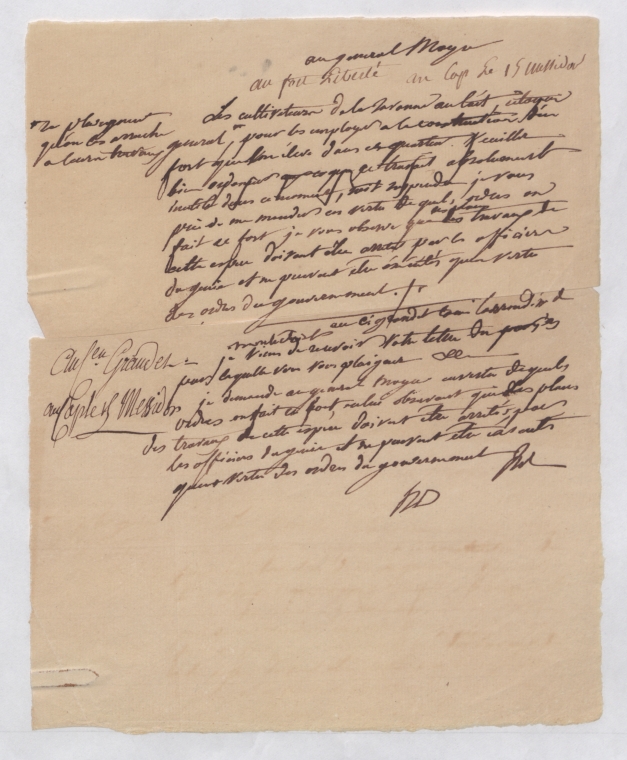 au general Moyse
au fort Liberté au Cap Le 15 messidor
se plaignent
qu'on les arrache
a leurs travaux
Les cultivateurs de la Savanne au lait citoyen
general, pour les employer a la construction d'un
fort que l'on éleve dans ce quartier. Veuillez
bien ordonner que ce travail absolument
inutile dans ce moment, soit suspendu je vous
prie de me mander en vertu de quels ordres on
fait ce fort, je vous observe que les plans des travaux de
cette espece doivent être arretés par les officiers
du genie et ne peuvent etre executés qu'en vertu
des ordres du gouvernement.
au Cen Grandet
au Cap le 15 Messidor
je viens de recevoir votre lettre du
par laquelle vous vous plaignez
je demande au general Moyse en vertu de quels
ordres on fait ce fort, en lui observant que les plans
des travaux de cette espece doivent etre arretés par
les officiers du genie et ne peuvent etre executés
qu'en vertu des ordres du gouvernement